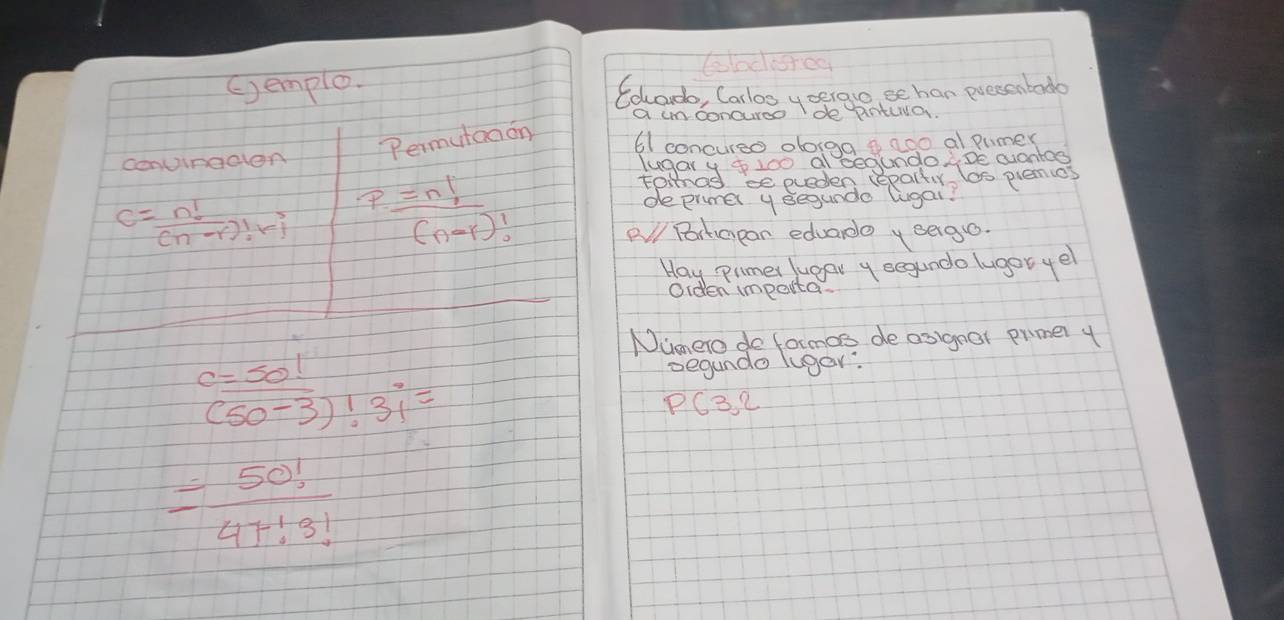 Ejemplo.
convinacion
Permutación
C = n!
(n-r)! r!
P = n!
(n-r)!
C = 50!
(50-3)! 3! =
= 50!
47! 3!
Estadistica
Eduardo, Carlos y sergio se han presentado
a un concurso de pintura.
El concurso otorga $200 al primer
lugar y $100 al segundo ¿De cuantas
formas se pueden repartir los premios
de primer y segundo lugar?
R// Participan eduardo y sergio.
Hay primer lugar y segundo lugar y el
orden importa.
Número de formas de asignar primer y
segundo lugar:
P(3,2